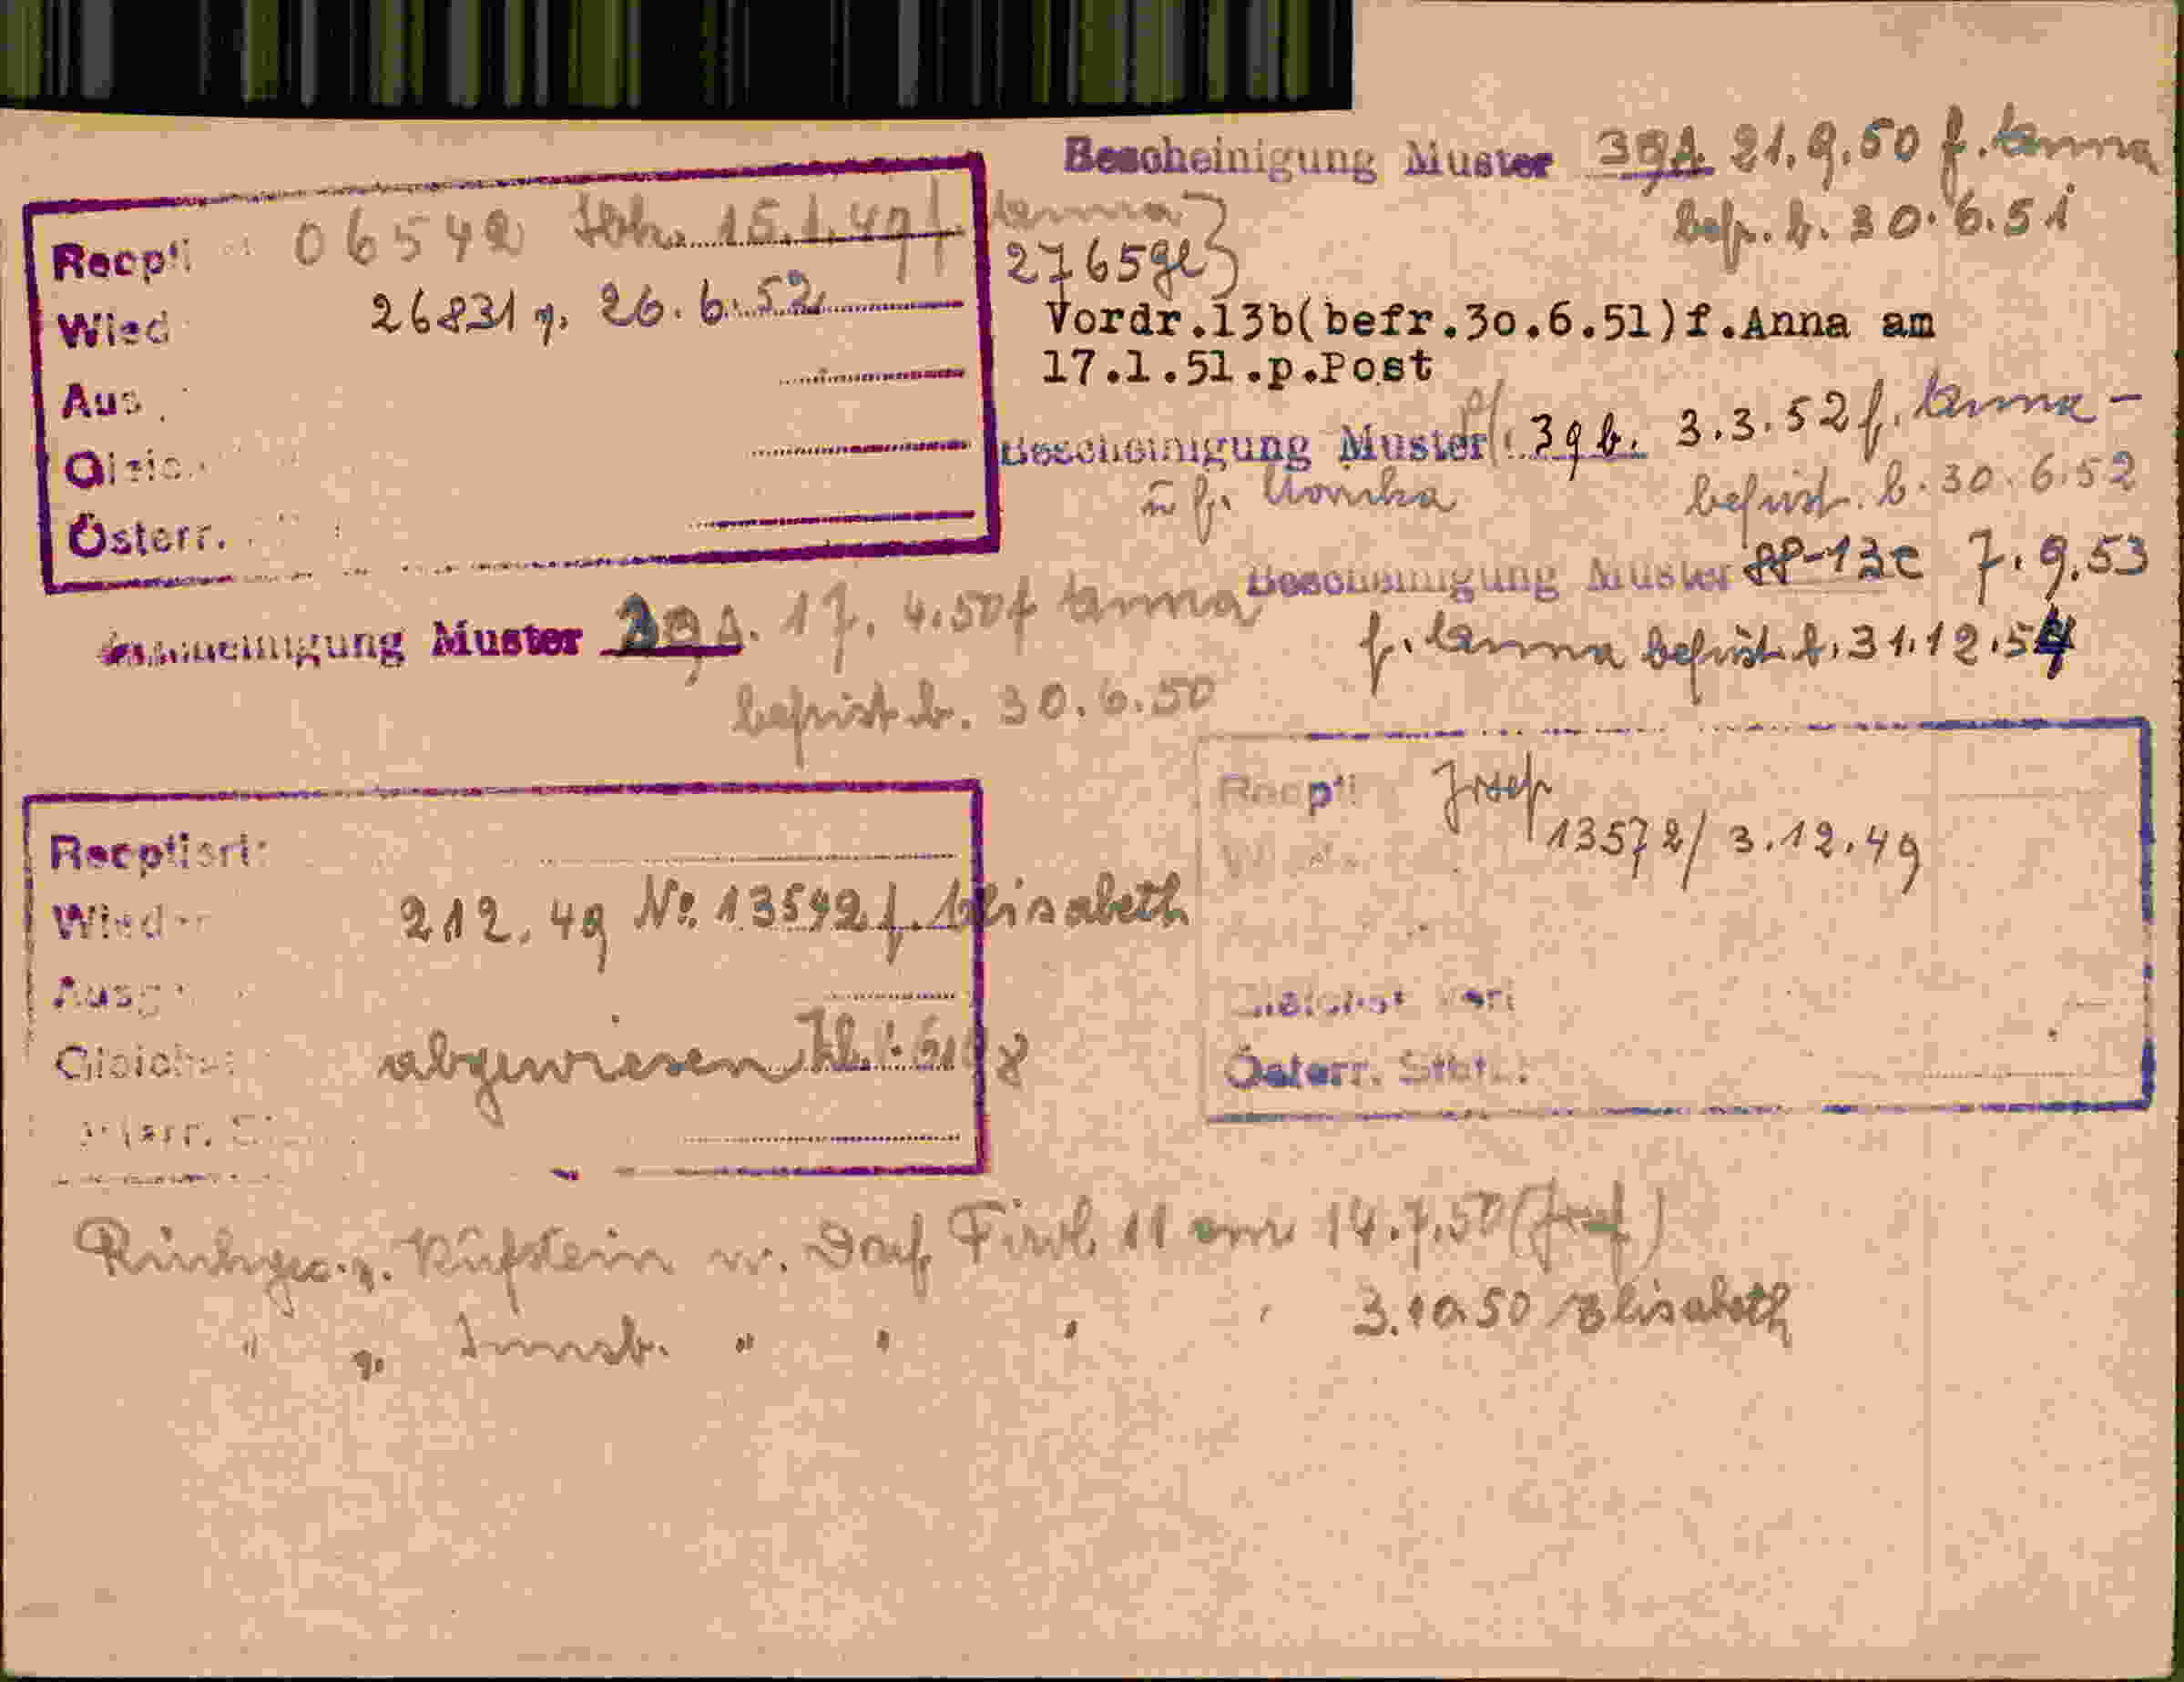 Bescheinigung Muster 39A. 21.9.50 f. Anna
befr. b. 30.6.51
Recpti 06542 15.1.49 f. Anna
Wied 26831 g. 26.6.52
2765ge
Aus
Gleic
Österr.
Vordr.13b(befr.3o.6.51)f.Anna am
17.1.51.p.Post
Bescheinigung Muster 39b. 3.3.52 f. Anna -
u fr. Monika befrist. b. 30.6.52
Bescheinigung Muster 13c 7.9.53
f. Anna befrist. b. 31.12.54
Bescheinigung Muster 39A. 17.4.50 f Anna
befrist b. 30.6.50
Recptiert
Wied 212.49 No. 13592 f. Elisabeth
Ausg
Gleich abgewiesen
Österr. S
Recpti Josef
13572/3.12.49
Gleichst
Österr. Stbt.:
Kufstein w. Tirol 11 am 14.7.50 (Josef)
" g. Innsb. " " " " 3.10.50 Elisabeth